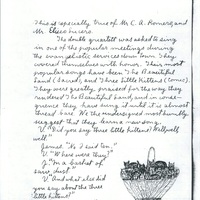 This is especially true of Mr. C. A. Romers and
Mr.
The double quartett was asked to sing
in one of the popular meetings during
the evangelistic services down town. They
covered themselves with honor. Their most
popular songs have been "The Beautiful
hand (sacred) and Three little kittens (comic).
They were greatly praised for the way they
rendered The Beautiful hand, and in conse-
quence they have sung it until it is almost
thread bare. We the undersigned most humbly
suggest that they learn a new song.
V. "Did you say three kittens? Wellwell
well."
"I said ten."
V. "Where were they?
J. "In a basket of
saw dust."
V. "And what else did
you say about the three
little kittens?"